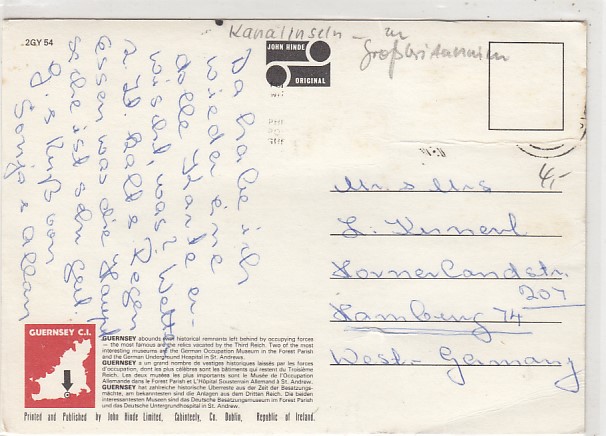 2GY 54
Kanalinseln - zu
Großbritannien
JOHN HINDE
ORIGINAL
Da habe ich
wieder eine
dolle Karte er-
wischt, was? Wetter
Kalt & Regen
Essen was die Haupt-
sache ist sehr gut
Gruß von
Sonja & allen
4,-
Mr & Mrs
L. Kunert
Hornerlandstr.
207
Hamburg 74
West-Germany
GUERNSEY C.I.
GUERNSEY abounds with historical remnants left behind by occupying forces
— the most famous are the relics vacated by the Third Reich. Two of the most
interesting museums are the German Occupation Museum in the Forest Parish
and the German Underground Hospital in St. Andrews.
GUERNSEY a un grand nombre de vestiges historiques laissés par les forces
d'occupation, dont les plus célèbres sont les bâtiments qui restent du Troisième
Reich. Les deux musées les plus importants sont le Musée de l'Occupation
Allemande dans le Forest Parish et L'Hôpital Sousterrain Allemand à St. Andrews.
GUERNSEY hat zahlreiche historische Überreste aus der Zeit der Besatzungs-
mächte, am bekanntesten sind die Anlagen aus dem Dritten Reich. Die beiden
interessantesten Museen sind das Deutsche Besatzungsmuseum im Forest Parish
und das Deutsche Untergrundhospital in St. Andrew.
Printed and Published by John Hinde Limited, Cabinteely, Co. Dublin, Republic of Ireland.